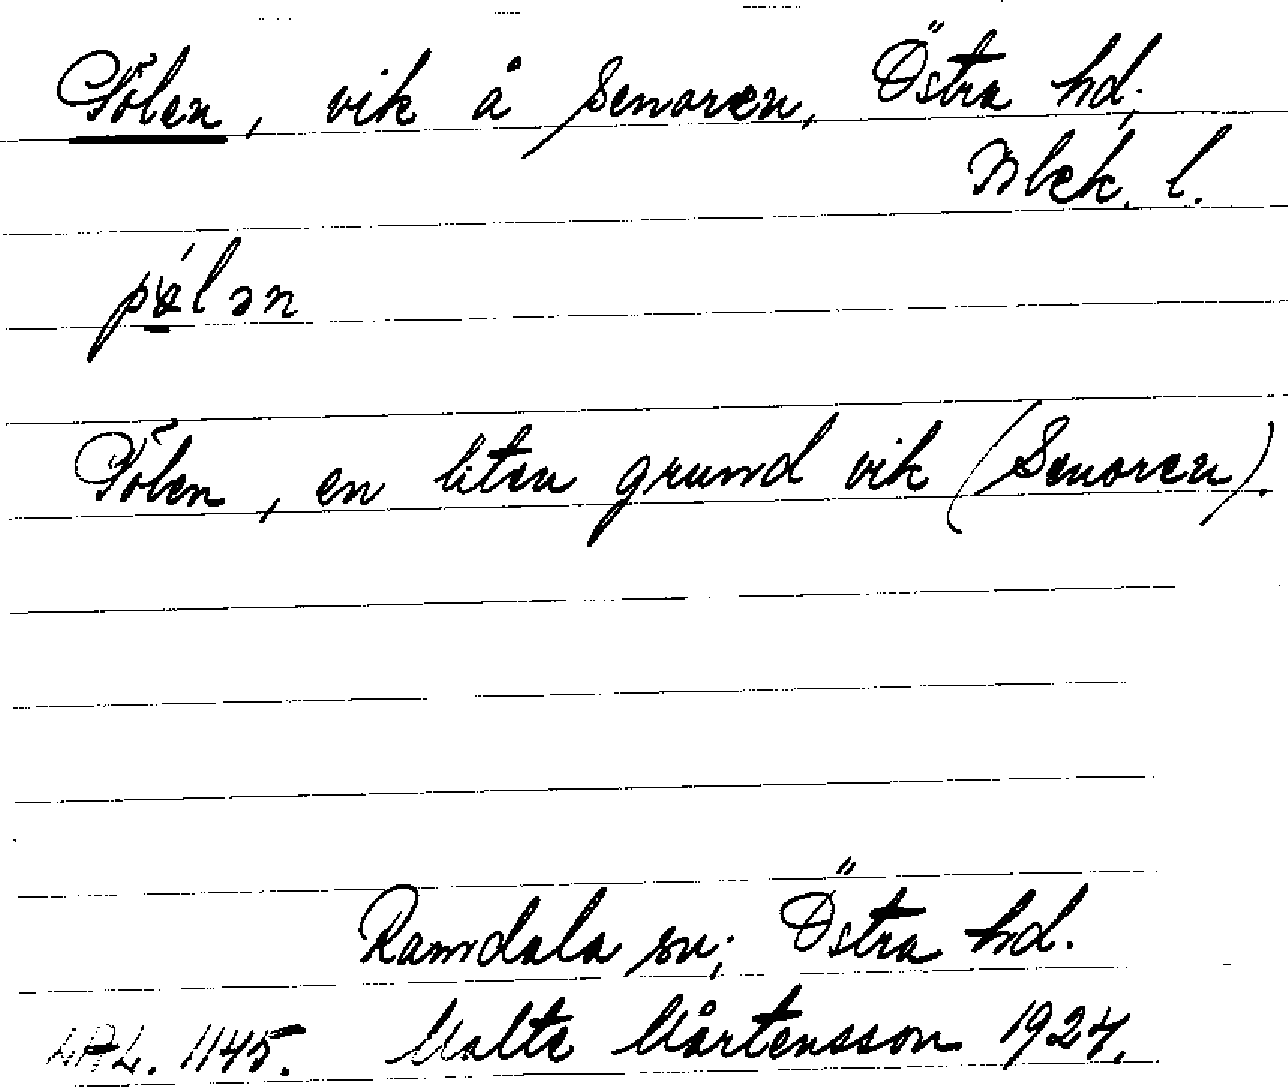 Pölen, vik å Senoren, Östra hd;
Blek. l.
pǿlən
Pölen, en liten grund vik (Senoren).
Ramdala sn; Östra hd.
LAL. 1145. Malte Mårtensson 1924.